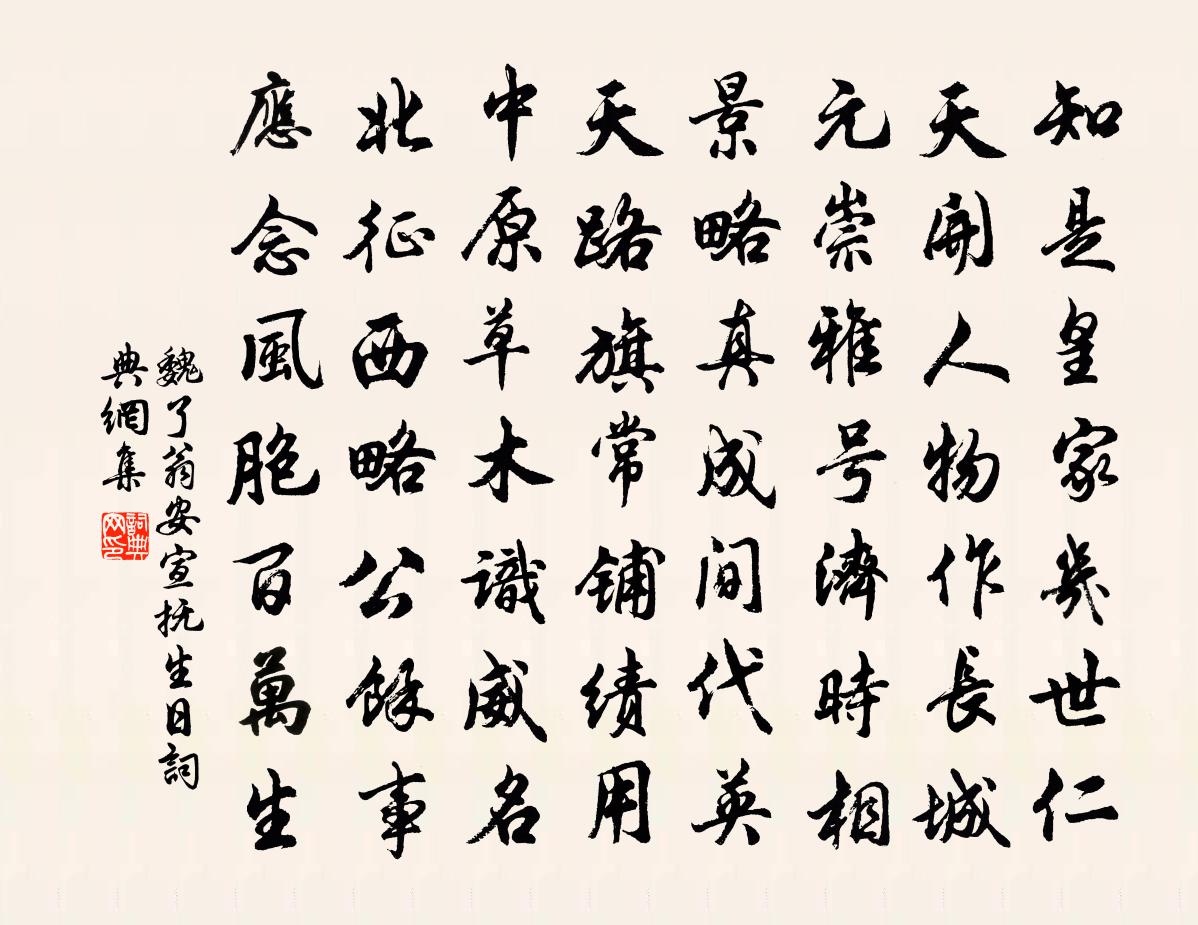 知是皇家幾世仁
天開人物作長城
元崇雅号濟時相
景略真成間代英
天路旗常鋪績用
中原草木識威名
北征西略公餘事
應念風胞百萬生
魏了翁安宣抚生日詞
典網集
詞典網印